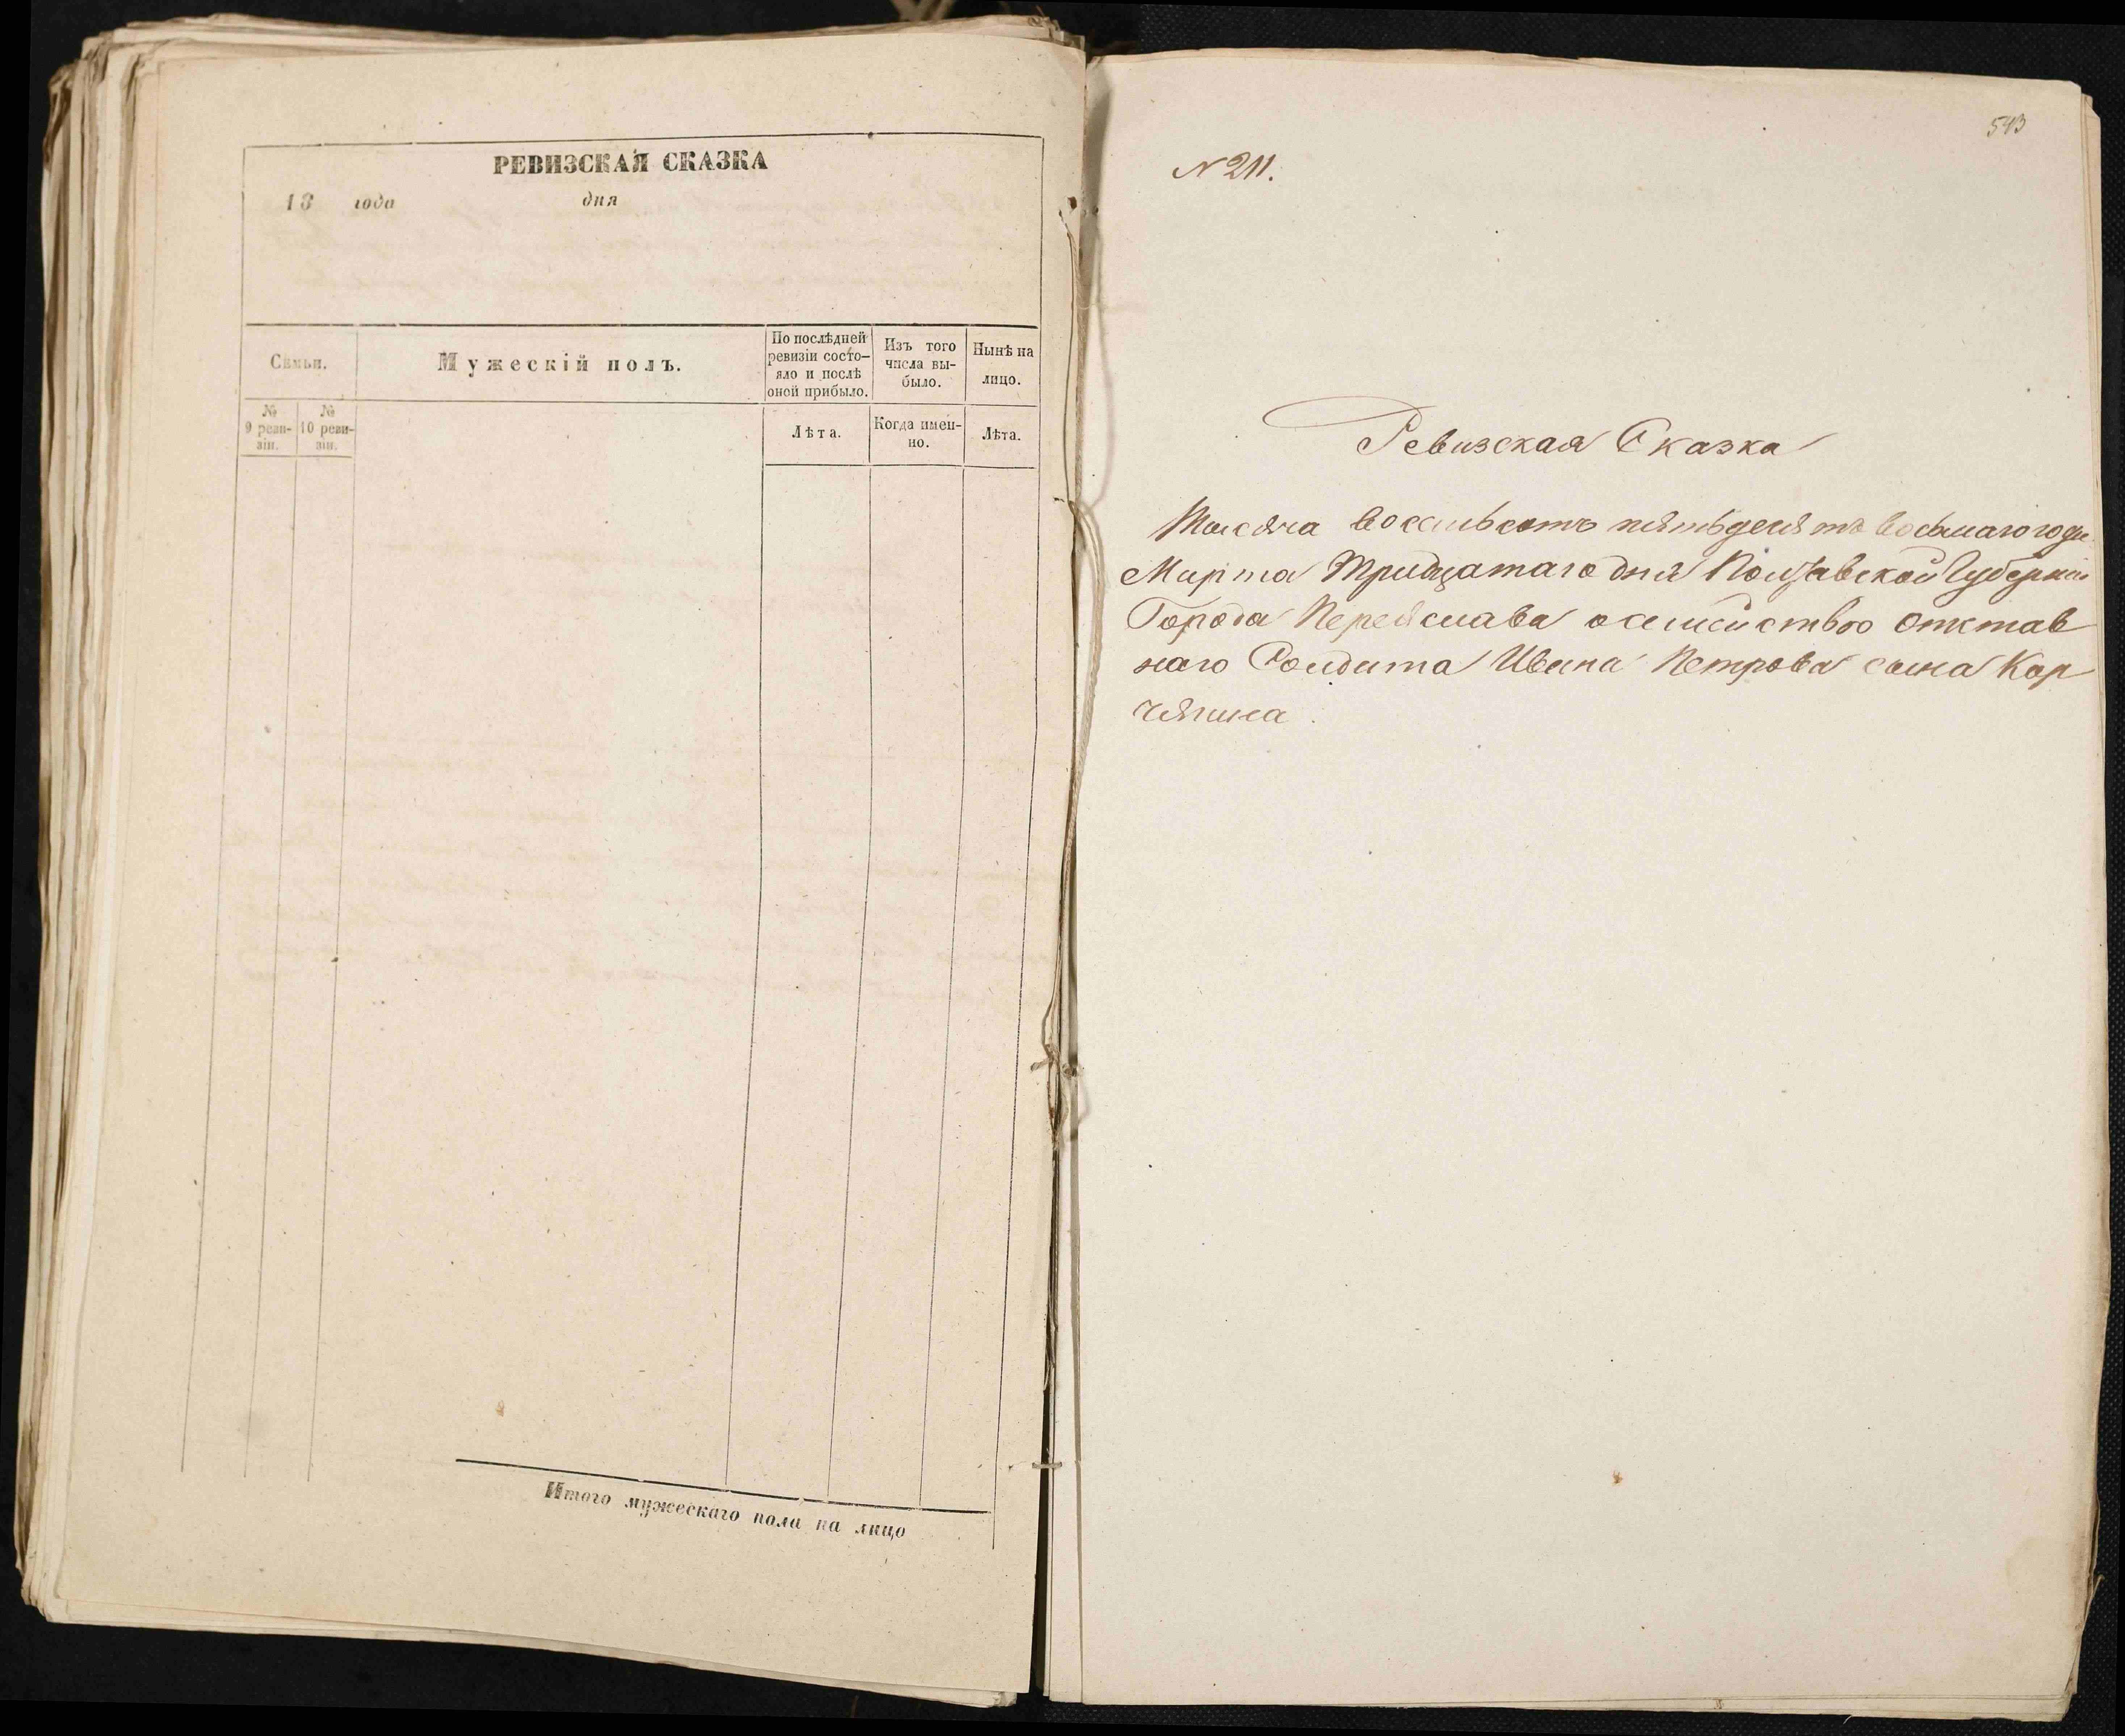 РЕВИЗСКАЯ СКАЗКА
18 года дня
Семьи.
Мужескій полъ.
По послѣдней
ревизіи состо-
яло и послѣ
оной прибыло.
Изъ того
числа вы-
было.
Нынѣ на
лицо.
№
9 реви-
зіи.
№
10 реви-
зіи.
Лѣта.
Когда имен-
но.
Лѣта.
Итого мужескаго пола на лицо
543
№ 211.
Ревизская Сказка
Тысяча восемьсотъ пятьдесятъ восьмаго года
Марта Тридцатаго дня Полтавской Губерніи
Города Переяслава о семействѣ отстав
наго Солдата Ивана Петрова сына Кор
чагина.